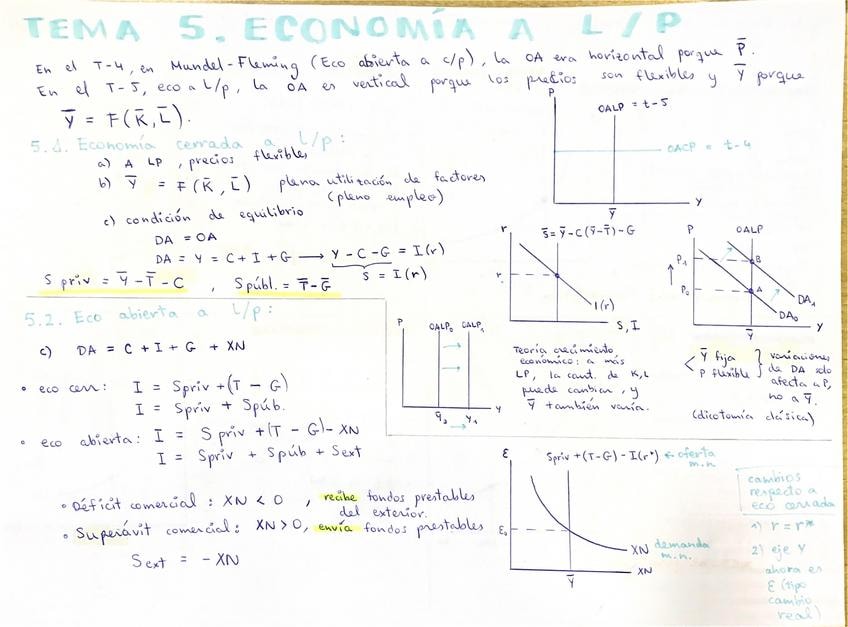 TEMA 5. ECONOMÍA A L/P
En el T-4, en Mundel-Fleming (Eco abierta a c/p), la OA era horizontal porque P̅.
En el T-5, eco a L/p, la OA es vertical porque los precios son flexibles y Y̅ porque
Y̅ = F(K̅, L̅).
P
OALP = t-5
OACP = t-4
Y̅
Y
5.1. Economía cerrada a L/p:
a) A LP, precios flexibles
b) Y̅ = F(K̅, L̅) plena utilización de factores
(pleno empleo)
c) condición de equilibrio
DA = OA
DA = Y = C + I + G → Y - C - G = I(r)
S = I(r)
S priv = Y̅ - T̅ - C , S públ. = T̅ - G̅
r
S̅ = Y̅ - C(Y̅ - T̅) - G
r.
I(r)
S, I
P
OALP
P₁
B
P₀
A
DA₁
DA₀
Y̅
Y
Teoría crecimiento
económico: a más
LP, la cant. de K, L
puede cambiar, y
Y̅ también varía.
Y̅ fija
P flexible
variaciones
de DA solo
afecta a P,
no a Y̅.
(dicotomía clásica)
5.2. Eco abierta a L/p:
c) DA = C + I + G + XN
P
OALP₀
OALP₁
Y̅₀
Y₁
Y
• eco cerr: I = Spriv + (T - G)
I = Spriv + Spúb.
• eco abierta: I = Spriv + (T - G) - XN
I = Spriv + Spúb + Sext
• Déficit comercial: XN < 0 , recibe fondos prestables
del exterior.
• Superávit comercial: XN > 0, envía fondos prestables
Sext = - XN
ε
Spriv + (T-G) - I(r*) ← oferta
m.n
ε₀
XN demanda
m.n.
XN
Y̅
cambios
respecto a
eco cerrada
1) r = r*
2) eje Y
ahora es
ε (tipo
cambio
real)